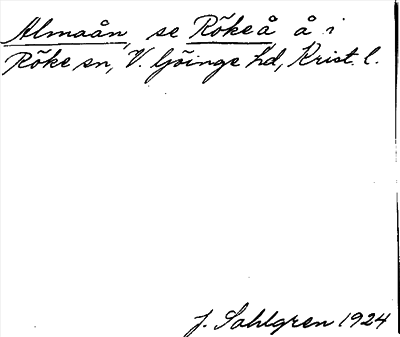 Almaån, se Rökeå å i
Röke sn, V. Göinge hd, Krist. l.
J. Sahlgren 1924